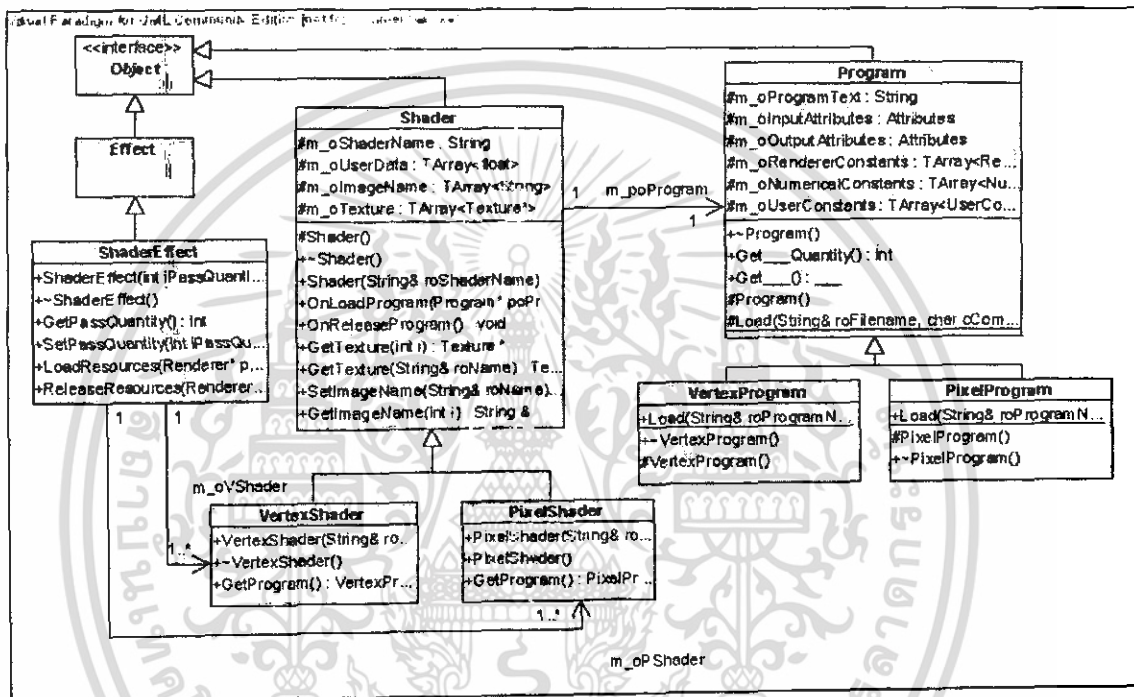 Visual Paradigm for UML Community Edition
<<interface>>
Object
Effect
ShaderEffect
+ShaderEffect(int iPassQuanti...
+~ShaderEffect()
+GetPassQuantity() : int
+SetPassQuantity(int iPassQu...
+LoadResources(Renderer* p...
+ReleaseResources(Renderer...
Shader
#m_oShaderName : String
#m_oUserData : TArray<float>
#m_oImageName : TArray<String>
#m_oTexture : TArray<Texture*>
#Shader()
+~Shader()
+Shader(String& roShaderName)
+OnLoadProgram(Program* poPr
+OnReleaseProgram() void
+GetTexture(int i) : Texture *
+GetTexture(String& roName) Te...
+SetImageName(String& roName)...
+GetImageName(int i) String &
1
m_poProgram
1
Program
#m_oProgramText : String
#m_oInputAttributes : Attributes
#m_oOutputAttributes : Attributes
#m_oRendererConstants : TArray<Re...
#m_oNumericalConstants : TArray<Nu...
#m_oUserConstants : TArray<UserCo...
+~Program()
+Get___Quantity() : int
+Get___() : ___
#Program()
#Load(String& roFilename, char cCom...
VertexProgram
+Load(String& roProgramN...
+~VertexProgram()
#VertexProgram()
PixelProgram
+Load(String& roProgramN...
#PixelProgram()
+~PixelProgram()
1
1
m_oVShader
1..*
VertexShader
+VertexShader(String& ro...
+~VertexShader()
+GetProgram() : VertexPr...
PixelShader
+PixelShader(String& ro...
+PixelShader()
+GetProgram() : PixelPr...
1..*
m_oPShader